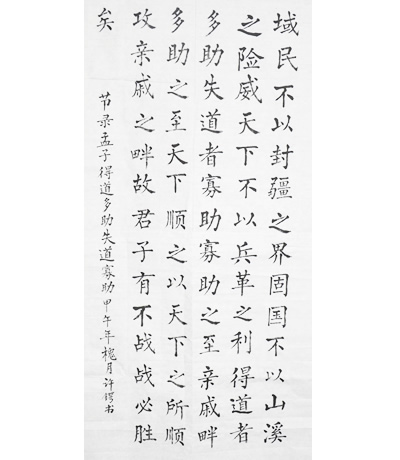 域民不以封疆之界固国不以山溪
之险威天下不以兵革之利得道者
多助失道者寡助寡助之至亲戚畔
多助之至天下顺之以天下之所顺
攻亲戚之畔故君子有不战战必胜
矣
节录孟子得道多助失道寡助甲午年槐月许锷书